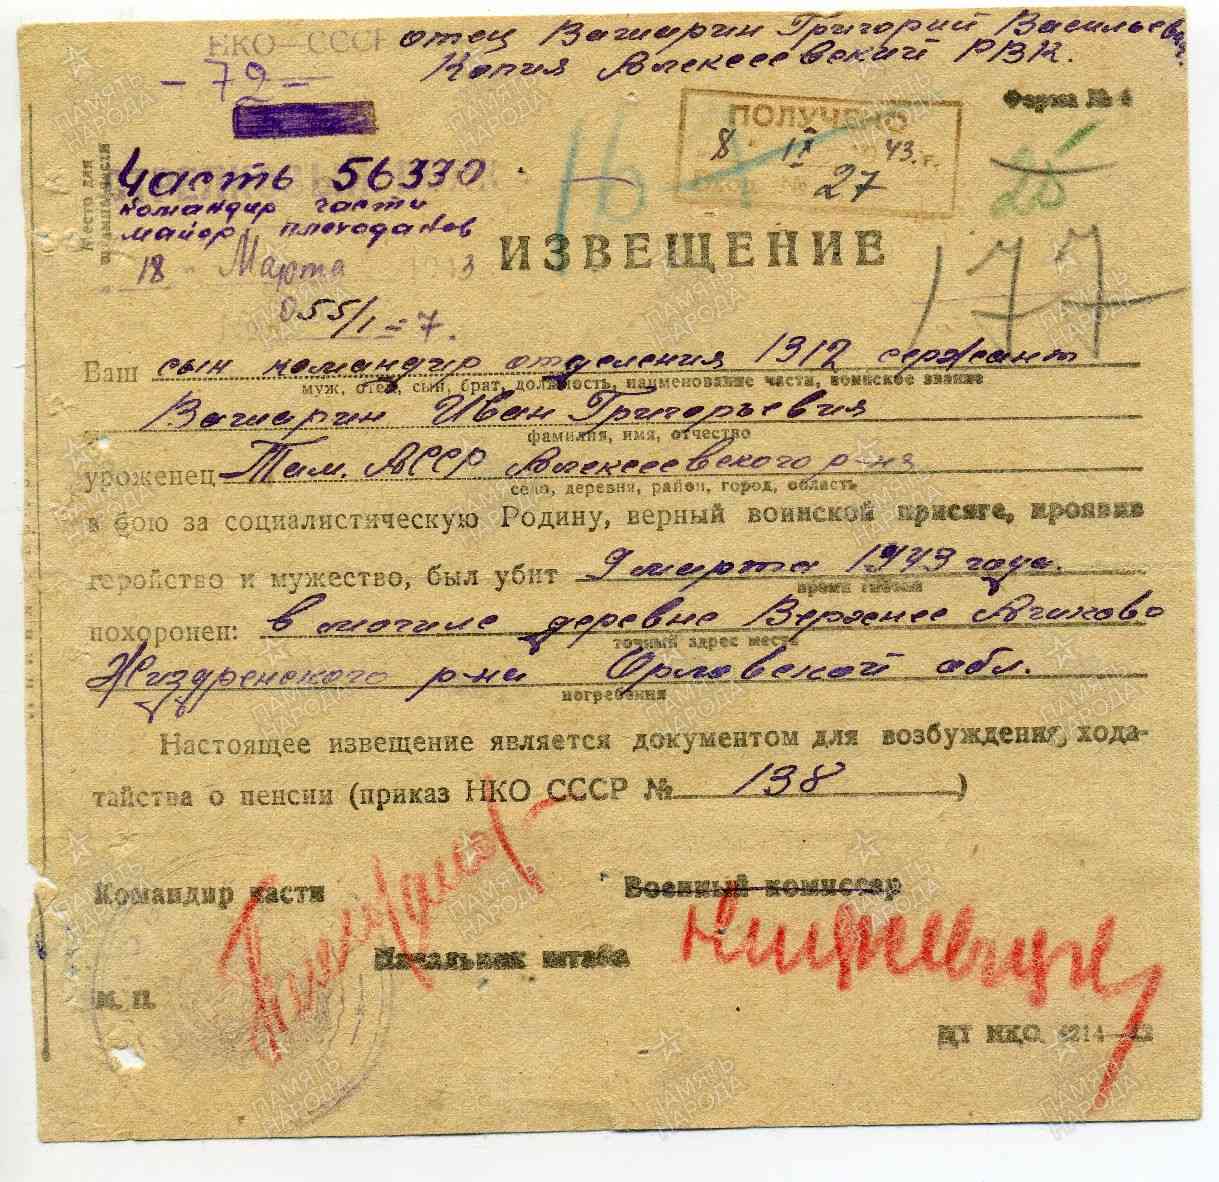 НКО СССР
отец Вашарин Григорий Васильевич
- 72 -
Копия Алексеевский РВК.
Форма № 4
ПОЛУЧЕНО
8 IX 43 г.
№ 27
16
25
Место для
Часть 56330
командир части
майор
18 Марта 3
ИЗВЕЩЕНИЕ
177
055/1=7.
Ваш сын командир отделения 1312 сержант
муж, отец, сын, брат, должность, наименование части, воинское звание
Вашарин Иван Григорьевич
фамилия, имя, отчество
уроженец Там. АССР Алексеевского р-на
село, деревня, район, город, область
в бою за социалистическую Родину, верный воинской присяге, проявив
геройство и мужество, был убит 9 марта 1943 года.
время гибели
похоронен: в могиле деревне Верхнее Ашково
точный адрес места
Жиздренского р-на Орловской обл.
погребения
Настоящее извещение является документом для возбуждения хода-
тайства о пенсии (приказ НКО СССР № 138)
Командир части
Военный комиссар
Начальник штаба
М. П.
ЦТ НКО 4214—42
ПАМЯТЬ НАРОДА